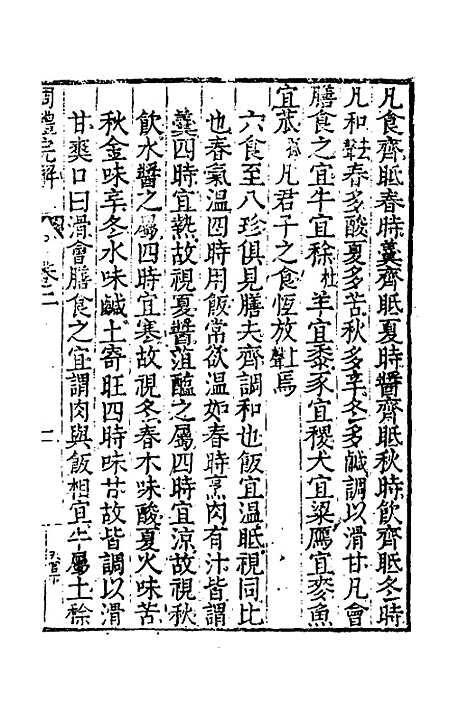 凡食齊眂春時羹齊眂夏時醬齊眂秋時飲齊眂冬時
凡和聲去春多酸夏多苦秋多辛冬多鹹調以滑甘凡會
膳食之宜牛宜稌杜羊宜黍豕宜稷犬宜粱鴈宜麥魚
宜苽孤凡君子之食恆放上聲焉
六食至八珍俱見膳夫齊調和也飯宜溫眂視同比
也春氣溫四時用飯常欲溫如春時烹肉有汁皆謂
羹四時宜熱故視夏醬菹醢之屬四時宜涼故視秋
飲水醬之屬四時宜寒故視冬春木味酸夏火味苦
秋金味辛冬水味鹹土寄旺四時味甘故皆調以滑
甘爽口曰滑會膳食之宜謂肉與飯相宜牛屬土稌
周禮完解 卷二